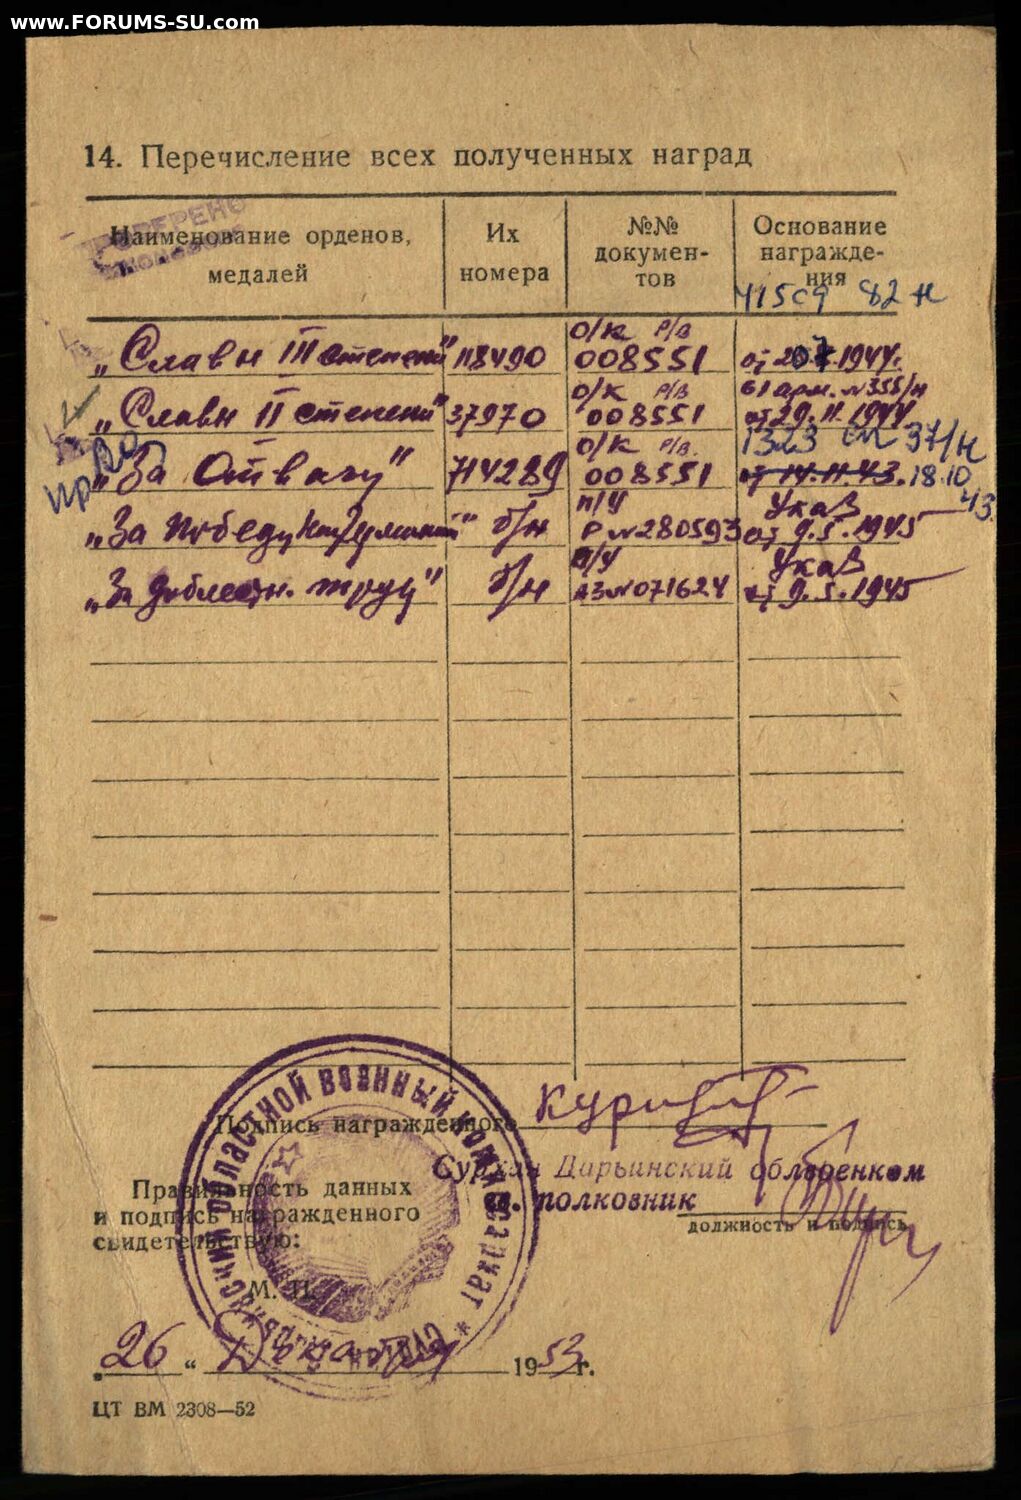 www.FORUMS-SU.com
14. Перечисление всех полученных наград
Наименование орденов, медалей
Их номера
№№ докумен-тов
Основание награжде-ния
415 сд 82 н
о/к Р/В
„Славы III степени" 118490 008551 от 1944г.
о/к Р/В 61 арм. №355/н
„Славы II степени" 37970 008551 от 29.11.1944
о/к Р/В 1323 сп 37/н
„За Отвагу" 714289 008551 от 14.11.43. 18.10 43
п/у Указ
„За победу над Германией" б/н Р №280593 от 9.5.1945
п/у Указ
„За доблестн. труд" б/н АЗ №071624 от 9.5.1945
Подпись награжденного
Сурхан Дарьинский облвоенком
полковник
должность и подпись
Правильность данных
и подпись награжденного
свидетельствую:
М. П.
ОБЛАСТНОЙ ВОЕННЫЙ КОМИССАРИАТ
„26" Декабря 1953 г.
ЦТ ВМ 2308—52